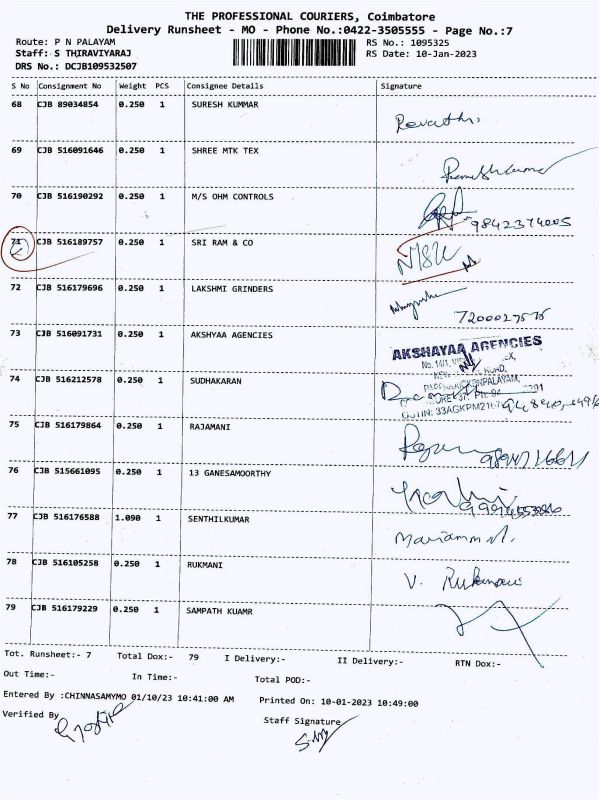 THE PROFESSIONAL COURIERS, Coimbatore
Delivery Runsheet - MO - Phone No.:0422-3505555 - Page No.:7
Route: P N PALAYAM RS No.: 1095325
Staff: S THIRAVIYARAJ RS Date: 10-Jan-2023
DRS No.: DCJB109532507
S No Consignment No Weight PCS Consignee Details Signature
68 CJB 89034854 0.250 1 SURESH KUMMAR Revathi
69 CJB 516091646 0.250 1 SHREE MTK TEX
70 CJB 516190292 0.250 1 M/S OHM CONTROLS 9842374005
71 CJB 516189757 0.250 1 SRI RAM & CO
72 CJB 516179696 0.250 1 LAKSHMI GRINDERS
73 CJB 516091731 0.250 1 AKSHYAA AGENCIES AKSHAYAA AGENCIES
74 CJB 516212578 0.250 1 SUDHAKARAN
75 CJB 516179864 0.250 1 RAJAMANI
76 CJB 515661095 0.250 1 13 GANESAMOORTHY
77 CJB 516176588 1.090 1 SENTHILKUMAR
78 CJB 516105258 0.250 1 RUKMANI V. Rukmani
79 CJB 516179229 0.250 1 SAMPATH KUAMR
Tot. Runsheet:- 7 Total Dox:- 79 I Delivery:- II Delivery:- RTN Dox:-
Out Time:- In Time:- Total POD:-
Entered By :CHINNASAMYMO 01/10/23 10:41:00 AM Printed On: 10-01-2023 10:49:00
Verified By Staff Signature